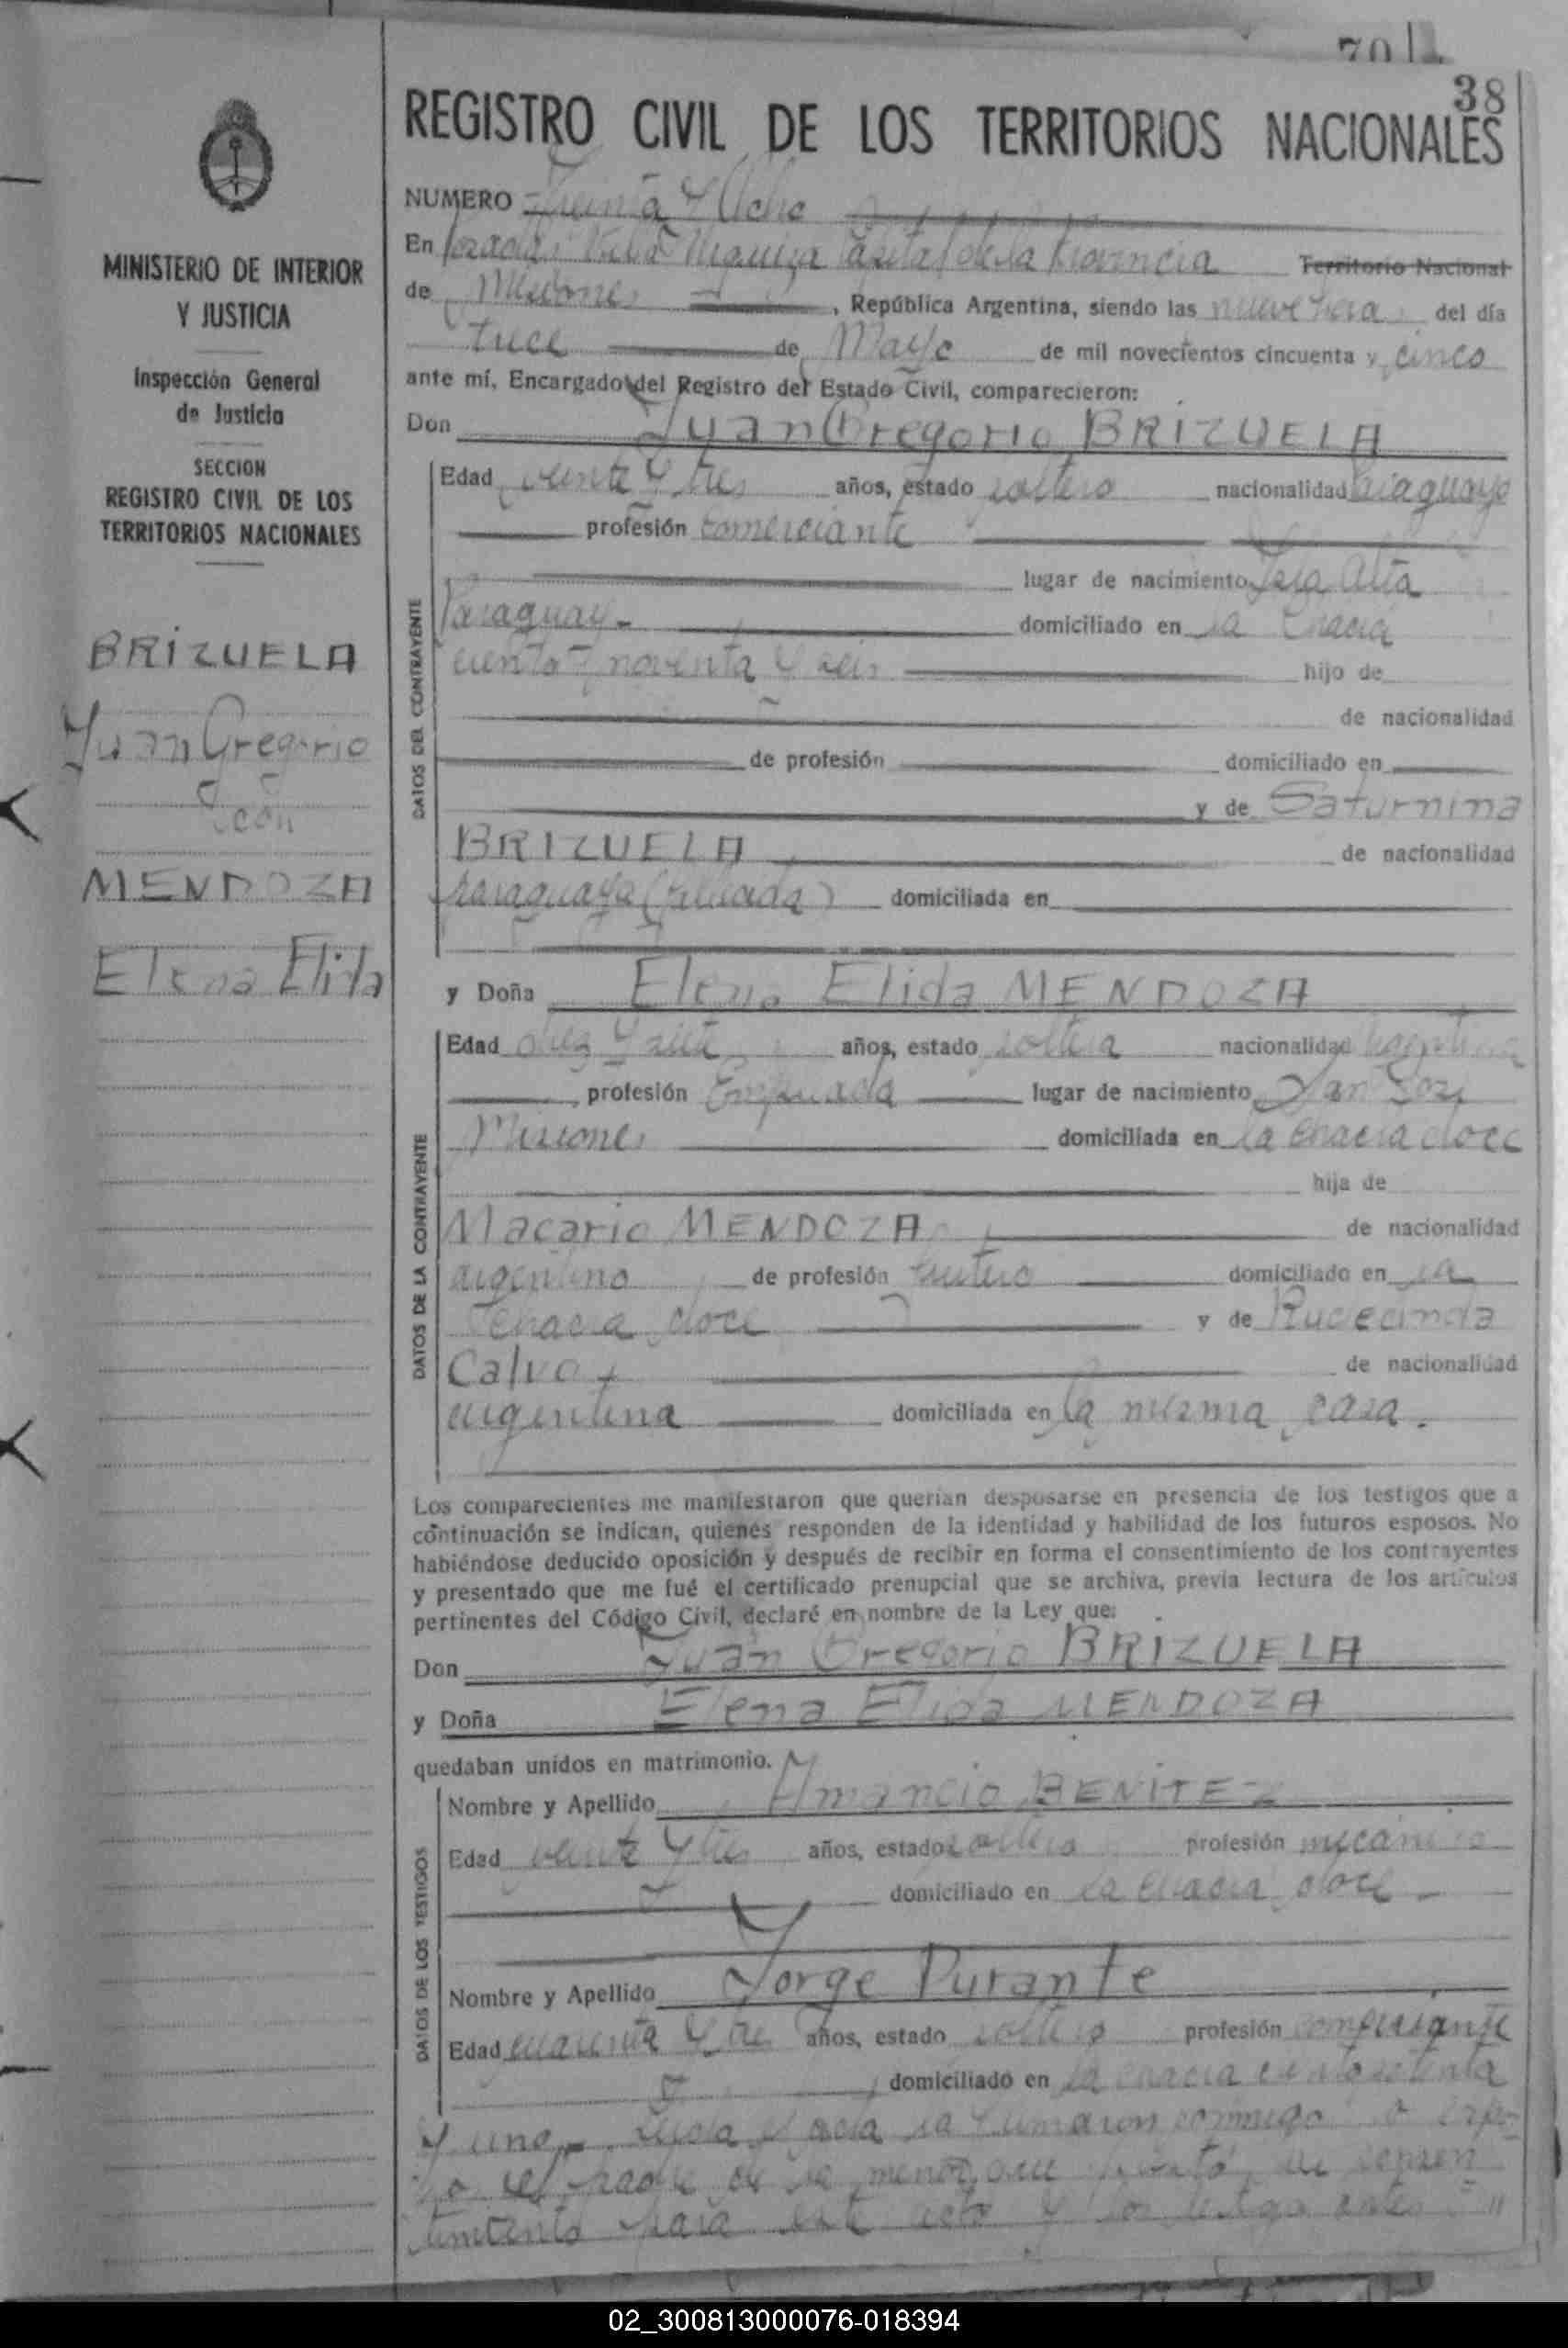 38
REGISTRO CIVIL DE LOS TERRITORIOS NACIONALES
NUMERO Treinta y Ocho
En Posadas Villa Urquiza Capital de la Provincia Territorio Nacional
de Misiones, República Argentina, siendo las nueve horas del día
trece de Mayo de mil novecientos cincuenta y cinco
ante mí, Encargado del Registro del Estado Civil, comparecieron:
Don Juan Gregorio BRIZUELA
DATOS DEL CONTRAYENTE
Edad veinte y tres años, estado soltero nacionalidad Paraguayo
profesión Comerciante
lugar de nacimiento Alta
Paraguay.- domiciliado en la Chacra
ciento noventa y seis hijo de
de nacionalidad
de profesión domiciliado en
y de Saturnina
BRIZUELA de nacionalidad
Paraguaya domiciliada en
y Doña Elena Elida MENDOZA
DATOS DE LA CONTRAYENTE
Edad diez y siete años, estado soltera nacionalidad Argentina
profesión Empleada lugar de nacimiento San José
Misiones domiciliada en la Chacra doce
hija de
Macario MENDOZA de nacionalidad
argentino de profesión domiciliado en la
Chacra doce y de Rudecinda
Calvo de nacionalidad
argentina domiciliada en la misma casa.
Los comparecientes me manifestaron que querían desposarse en presencia de los testigos que a
continuación se indican, quienes responden de la identidad y habilidad de los futuros esposos. No
habiéndose deducido oposición y después de recibir en forma el consentimiento de los contrayentes
y presentado que me fué el certificado prenupcial que se archiva, previa lectura de los artículos
pertinentes del Código Civil, declaré en nombre de la Ley que:
Don Juan Gregorio BRIZUELA
y Doña Elena Elida MENDOZA
quedaban unidos en matrimonio.
DATOS DE LOS TESTIGOS
Nombre y Apellido Amancio BENITEZ
Edad veinte y tres años, estado soltero profesión mecánico
domiciliado en la chacra doce -
Nombre y Apellido Jorge Durante
Edad cuarenta y tres años, estado soltero profesión comerciante
domiciliado en la chacra ciento setenta
y uno.- Leida el acta la firmaron conmigo
el padre de la menor que presto su consen
timiento para este acto y los testigos antes
MINISTERIO DE INTERIOR
Y JUSTICIA
Inspección General
de Justicia
SECCION
REGISTRO CIVIL DE LOS
TERRITORIOS NACIONALES
BRIZUELA
Juan Gregorio
con
MENDOZA
Elena Elida
02_300813000076-018394